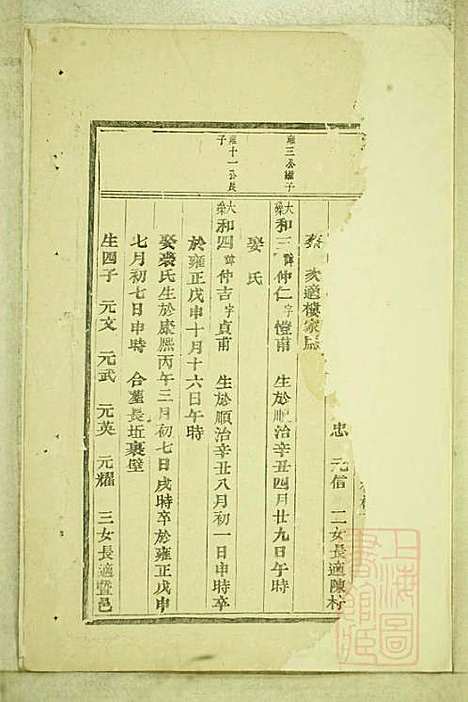 忠 元信 二女長適陳村
次適樓家
雍三公繼子
大樂和三諱仲仁字愷甫 生於順治辛丑四月廿九日午時
娶 氏
雍十一公長子
大樂和四諱仲吉字貞甫 生於順治辛丑八月初一日申時卒
於雍正戊申十月十六日午時
娶裘氏生於康熙丙午三月初七日戌時卒於雍正戊申
七月初七日申時 合塟長坵裏壁
生四子 元文 元武 元英 元耀 三女長適暨邑
上海圖書館藏